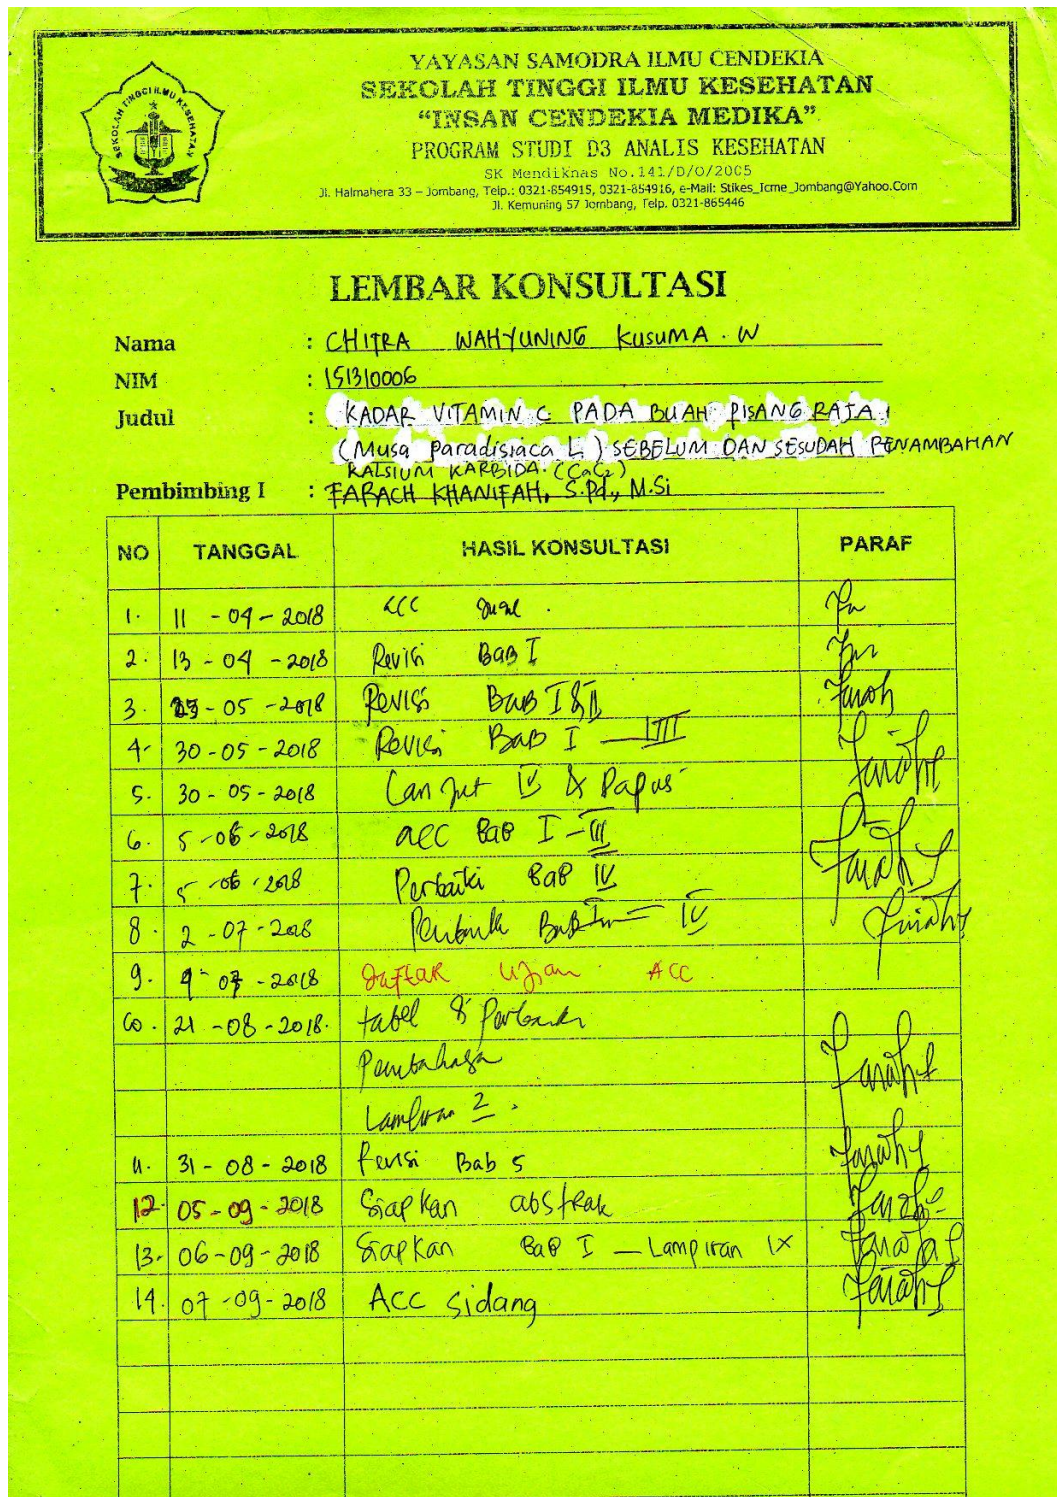 SEKOLAH TINGGI ILMU KESEHATAN
YAYASAN SAMODRA ILMU CENDEKIA
SEKOLAH TINGGI ILMU KESEHATAN
“INSAN CENDEKIA MEDIKA”
PROGRAM STUDI D3 ANALIS KESEHATAN
SK Mendiknas No.141/D/O/2005
Jl. Halmahera 33 – Jombang, Telp.: 0321-854915, 0321-854916, e-Mail: Stikes_Icme_Jombang@Yahoo.Com
Jl. Kemuning 57 Jombang, Telp. 0321-865446
LEMBAR KONSULTASI
Nama : CHITRA WAHYUNING KUSUMA . W
NIM : 151310006
Judul : KADAR VITAMIN C PADA BUAH PISANG RAJA
(Musa Paradisiaca L) SEBELUM DAN SESUDAH PENAMBAHAN
KALSIUM KARBIDA (CaC2)
Pembimbing I : FARACH KHANIFAH, S.Pd., M.Si
NO TANGGAL HASIL KONSULTASI PARAF
1. 11 - 04 - 2018 acc
2. 13 - 04 - 2018 Revisi BAB I
3. 23 - 05 - 2018 Revisi Bab I & II Farah
4. 30 - 05 - 2018 Revisi Bab I — III
5. 30 - 05 - 2018 Lanjut IV & Dapus Farah
6. 5 - 06 - 2018 acc Bab I - III
7. 5 - 06 - 2018 Perbaiki Bab IV Farah
8. 2 - 07 - 2018 Bab IV Farah
9. 9 - 07 - 2018 Daftar Ujian ACC
10. 21 - 08 - 2018. tabel &
Pembahasan
Lampiran 2. Farah
11. 31 - 08 - 2018 Revisi Bab 5 Farah
12. 05 - 09 - 2018 Siapkan abstrak Farah
13. 06 - 09 - 2018 Siapkan Bab I — Lampiran IX Farah
14. 07 - 09 - 2018 ACC sidang Farah